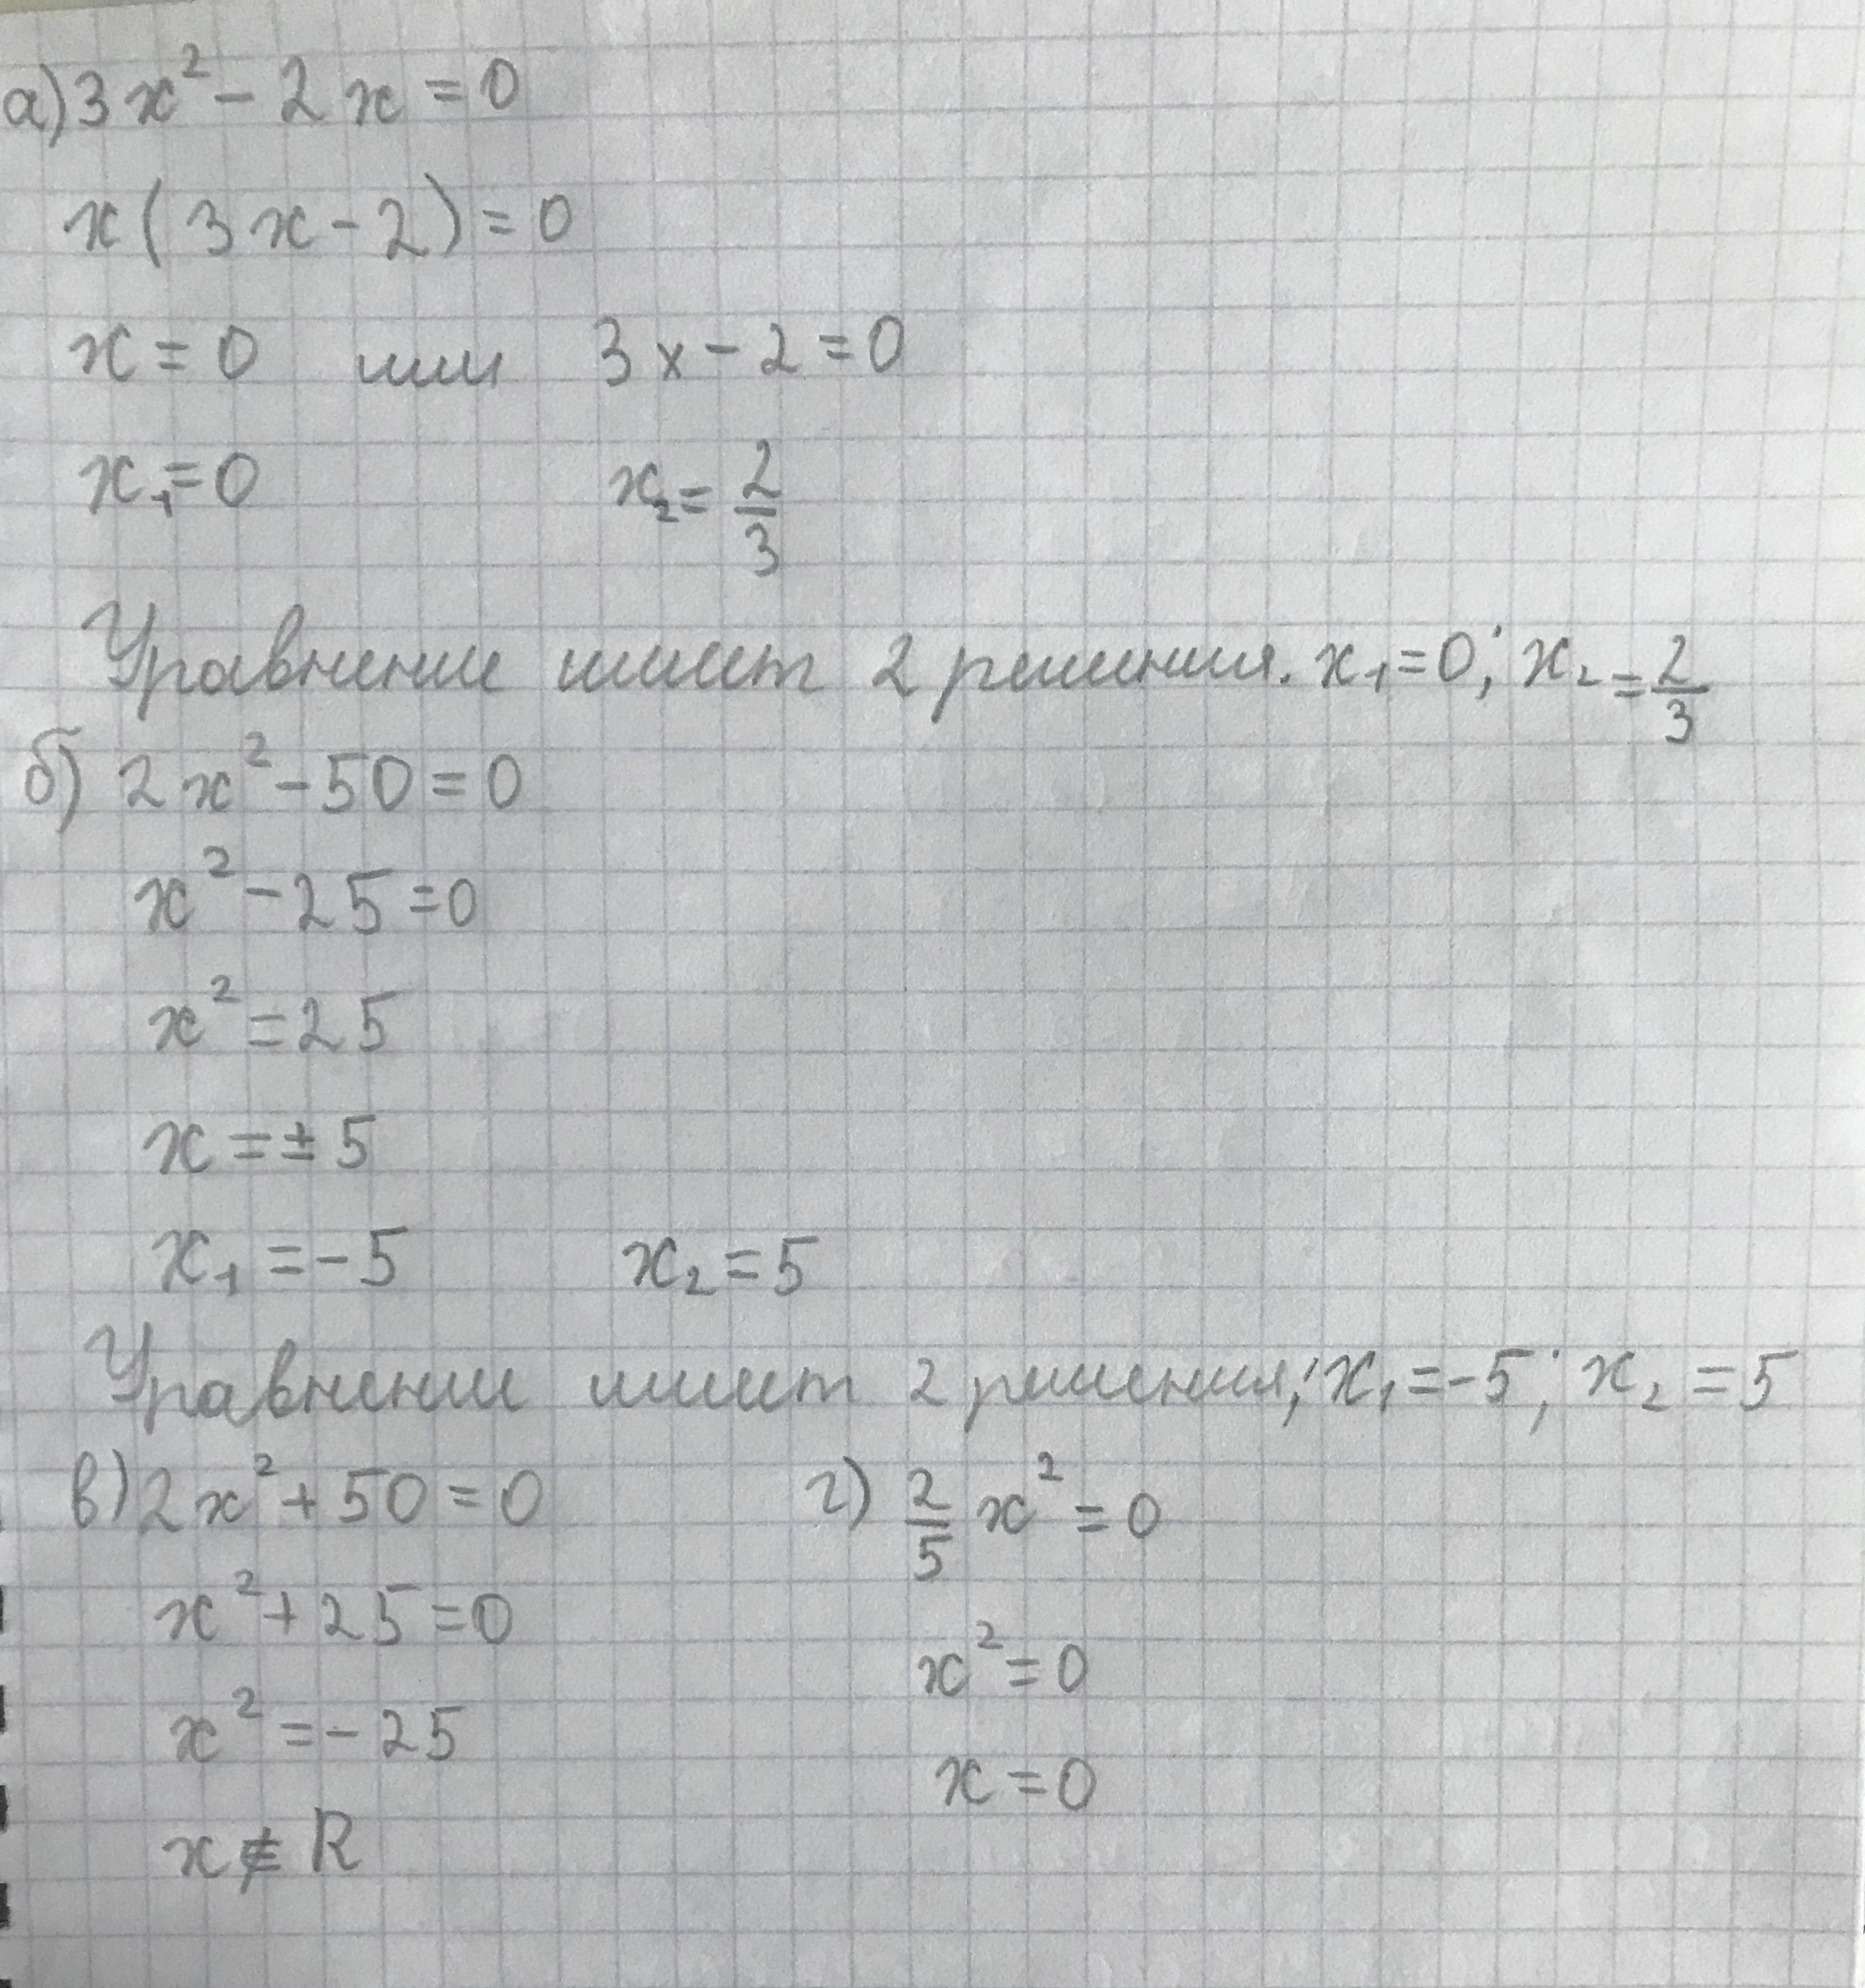 а) 3x² - 2x = 0
x(3x - 2) = 0
x = 0 или 3x - 2 = 0
x₁ = 0 x₂ = 2/3
Уравнение имеет 2 решения. x₁ = 0; x₂ = 2/3
б) 2x² - 50 = 0
x² - 25 = 0
x² = 25
x = ± 5
x₁ = -5 x₂ = 5
Уравнение имеет 2 решения; x₁ = -5; x₂ = 5
в) 2x² + 50 = 0
x² + 25 = 0
x² = -25
x ∉ R
г) 2/5 x² = 0
x² = 0
x = 0